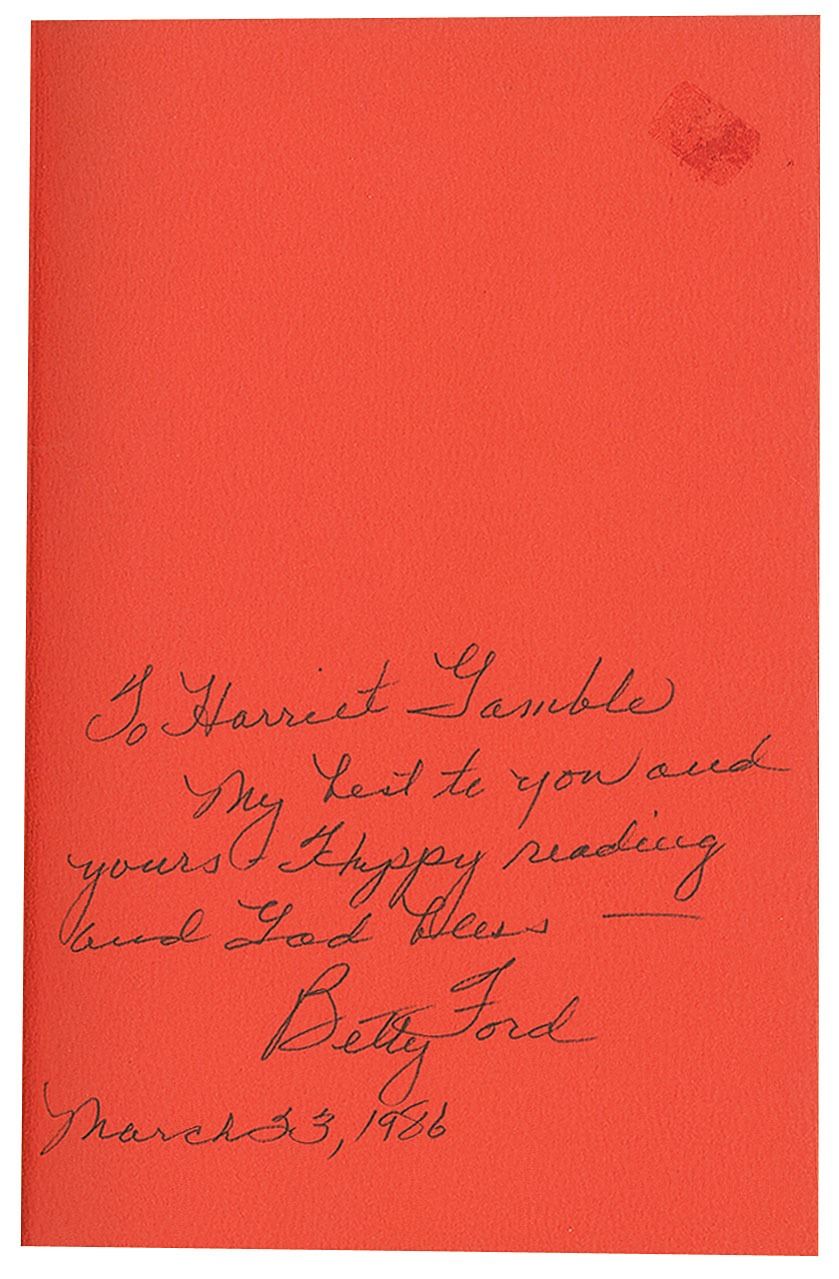 To Harriet Gamble
My best to you and
yours. Happy reading
and God bless —
Betty Ford
March 23, 1986